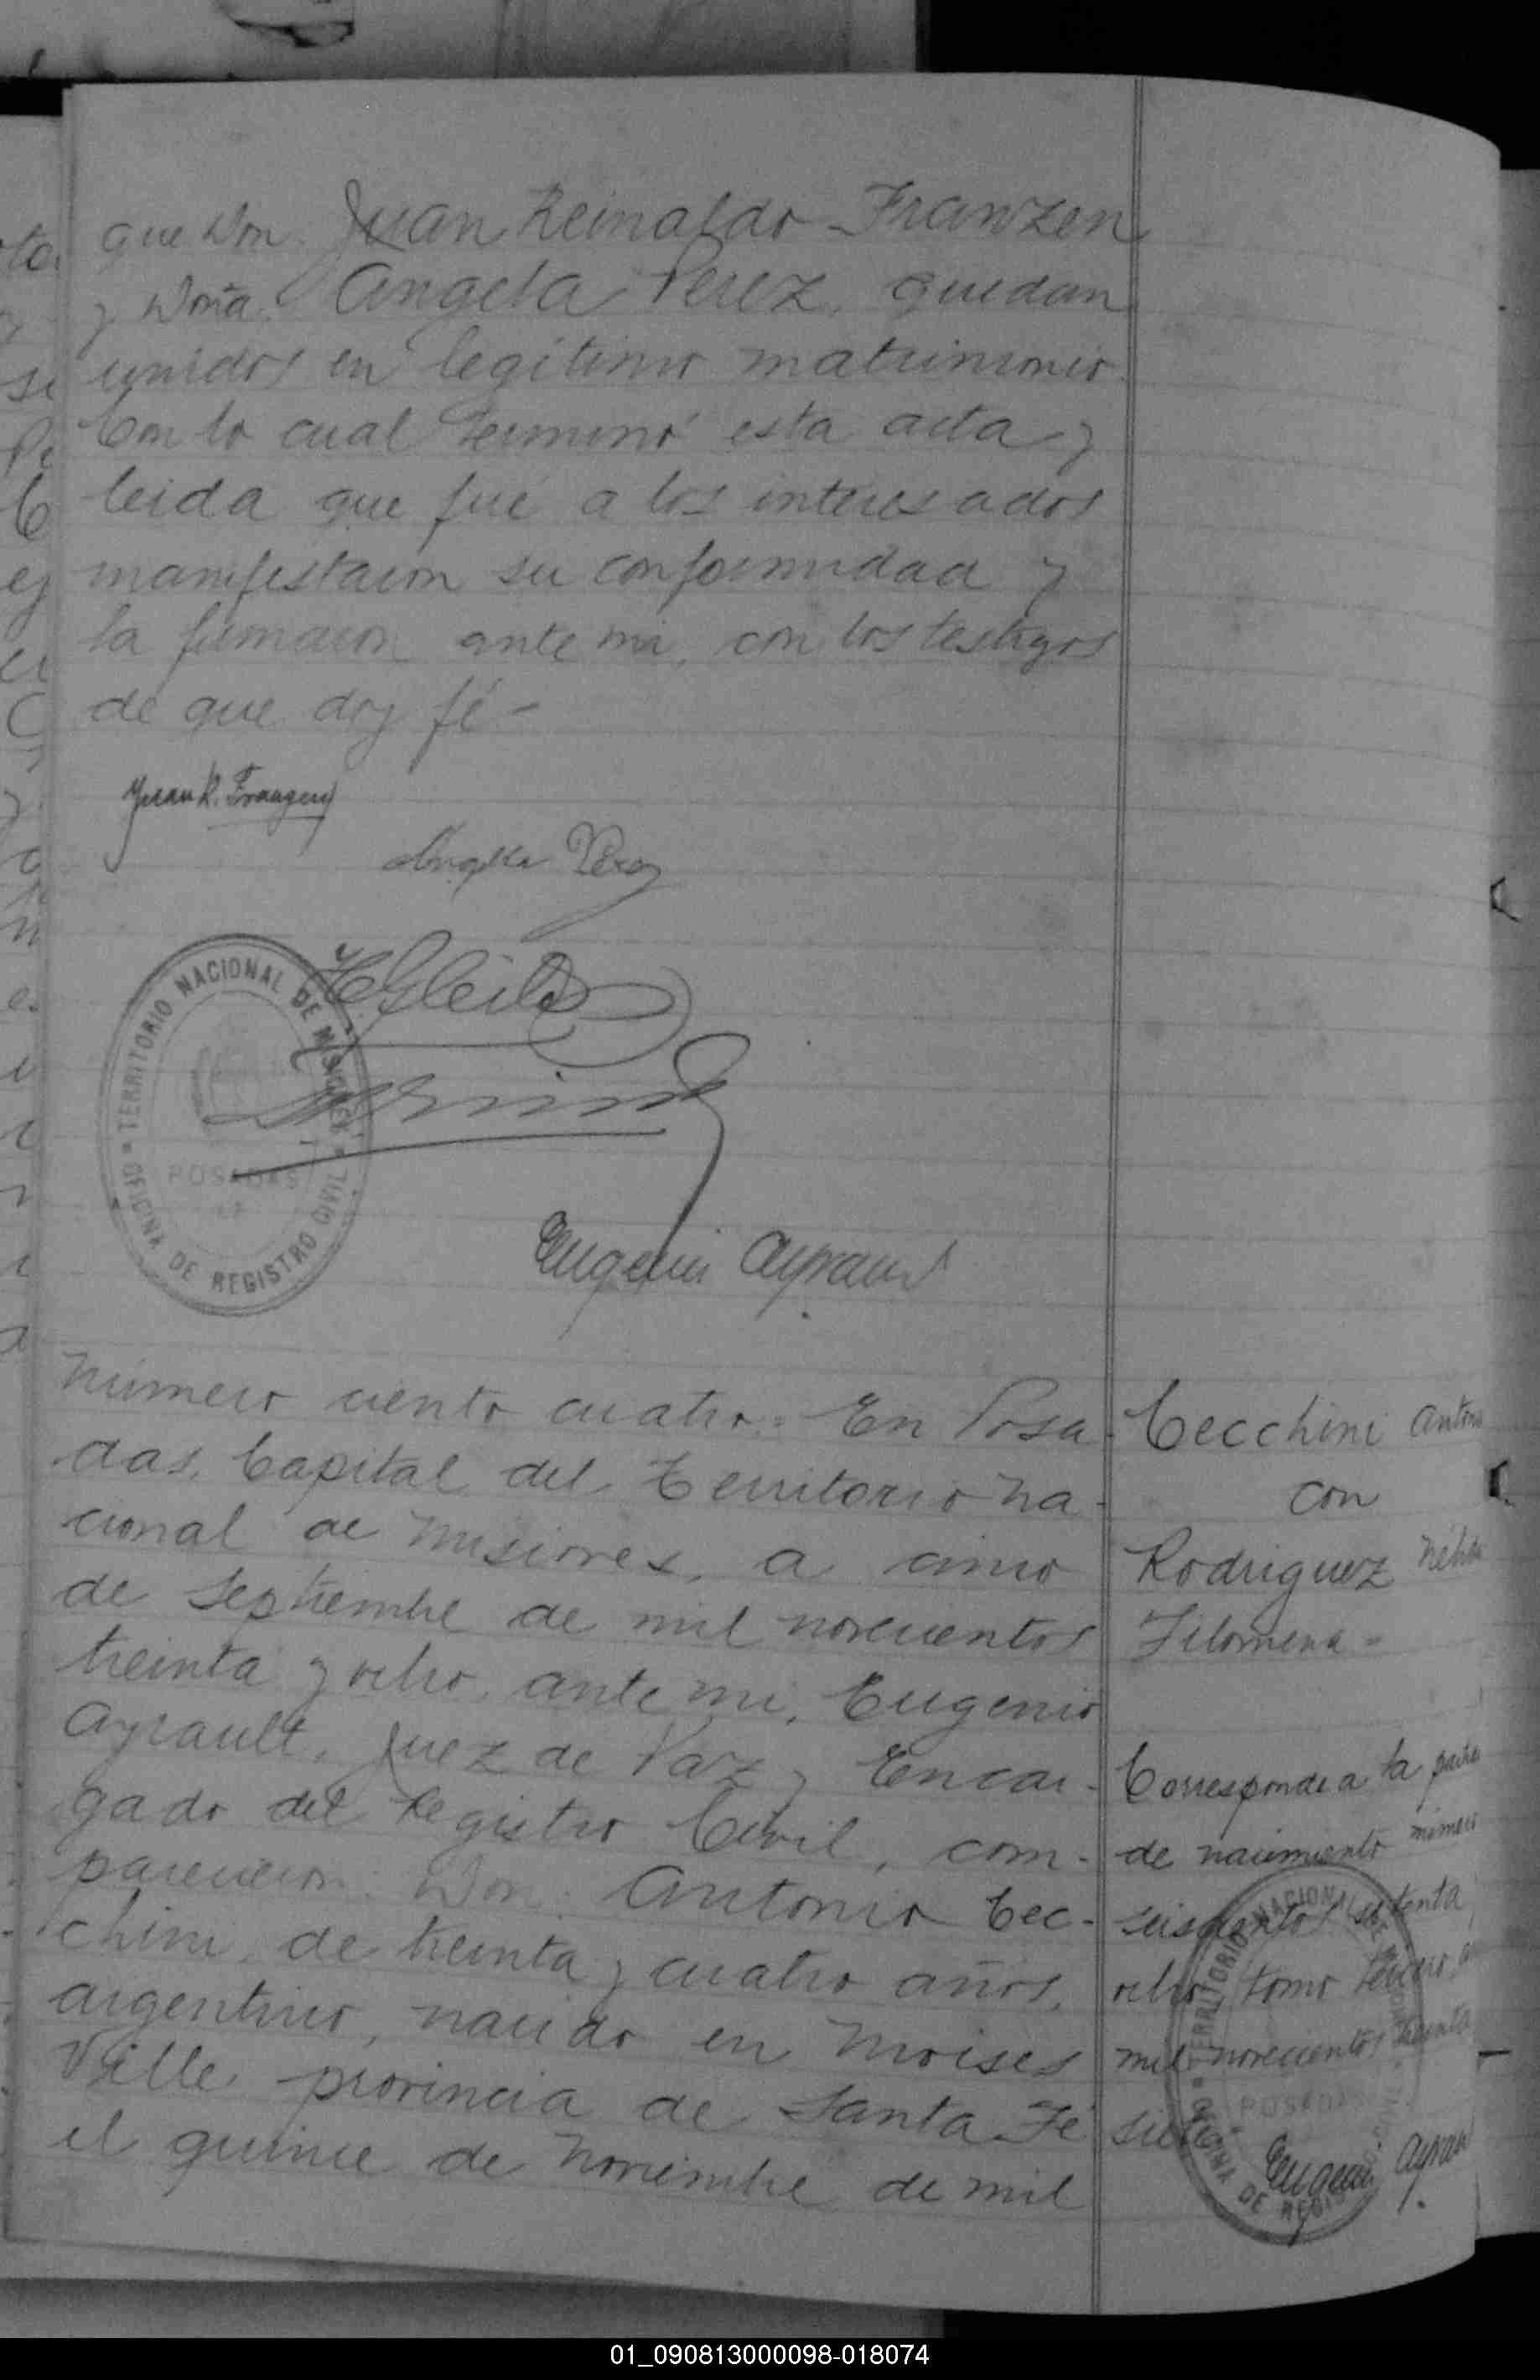 que Don. Juan Reinaldo Franzen
y Doña. Angela Perez, quedan
unidos en legítimo matrimonio.
Con lo cual terminó esta acta y
leida que fué a los interesados
manifestaron su conformidad y
la firmaron ante mi, con los testigos
de que doy fé-
Juan R. Franzen
Angela Perez
TERRITORIO NACIONAL DE MISIONES
POSADAS
OFICINA DE REGISTRO CIVIL
Eugenio Ayrault
Número ciento cuatro. En Posa-
das, Capital del Territorio Na-
cional de Misiones, a cinco
de Septiembre de mil novecientos
treinta y ocho, ante mi, Eugenio
Ayrault, Juez de Paz y Encar-
gado del Registro Civil, com-
parecieron: Don: Antonio Cec-
chini, de treinta y cuatro años,
argentino, nacido en Moises
Ville provincia de Santa Fé
el quince de Noviembre de mil
Cecchini Antonio
con
Rodriguez Nélida
Filomena=
Corresponde a la partida
de nacimiento número
seiscientos setenta y
ocho, tomo tercero, año
mil novecientos treinta
siete
Eugenio Ayrault
TERRITORIO NACIONAL DE MISIONES
POSADAS
OFICINA DE REGISTRO CIVIL
01_090813000098-018074